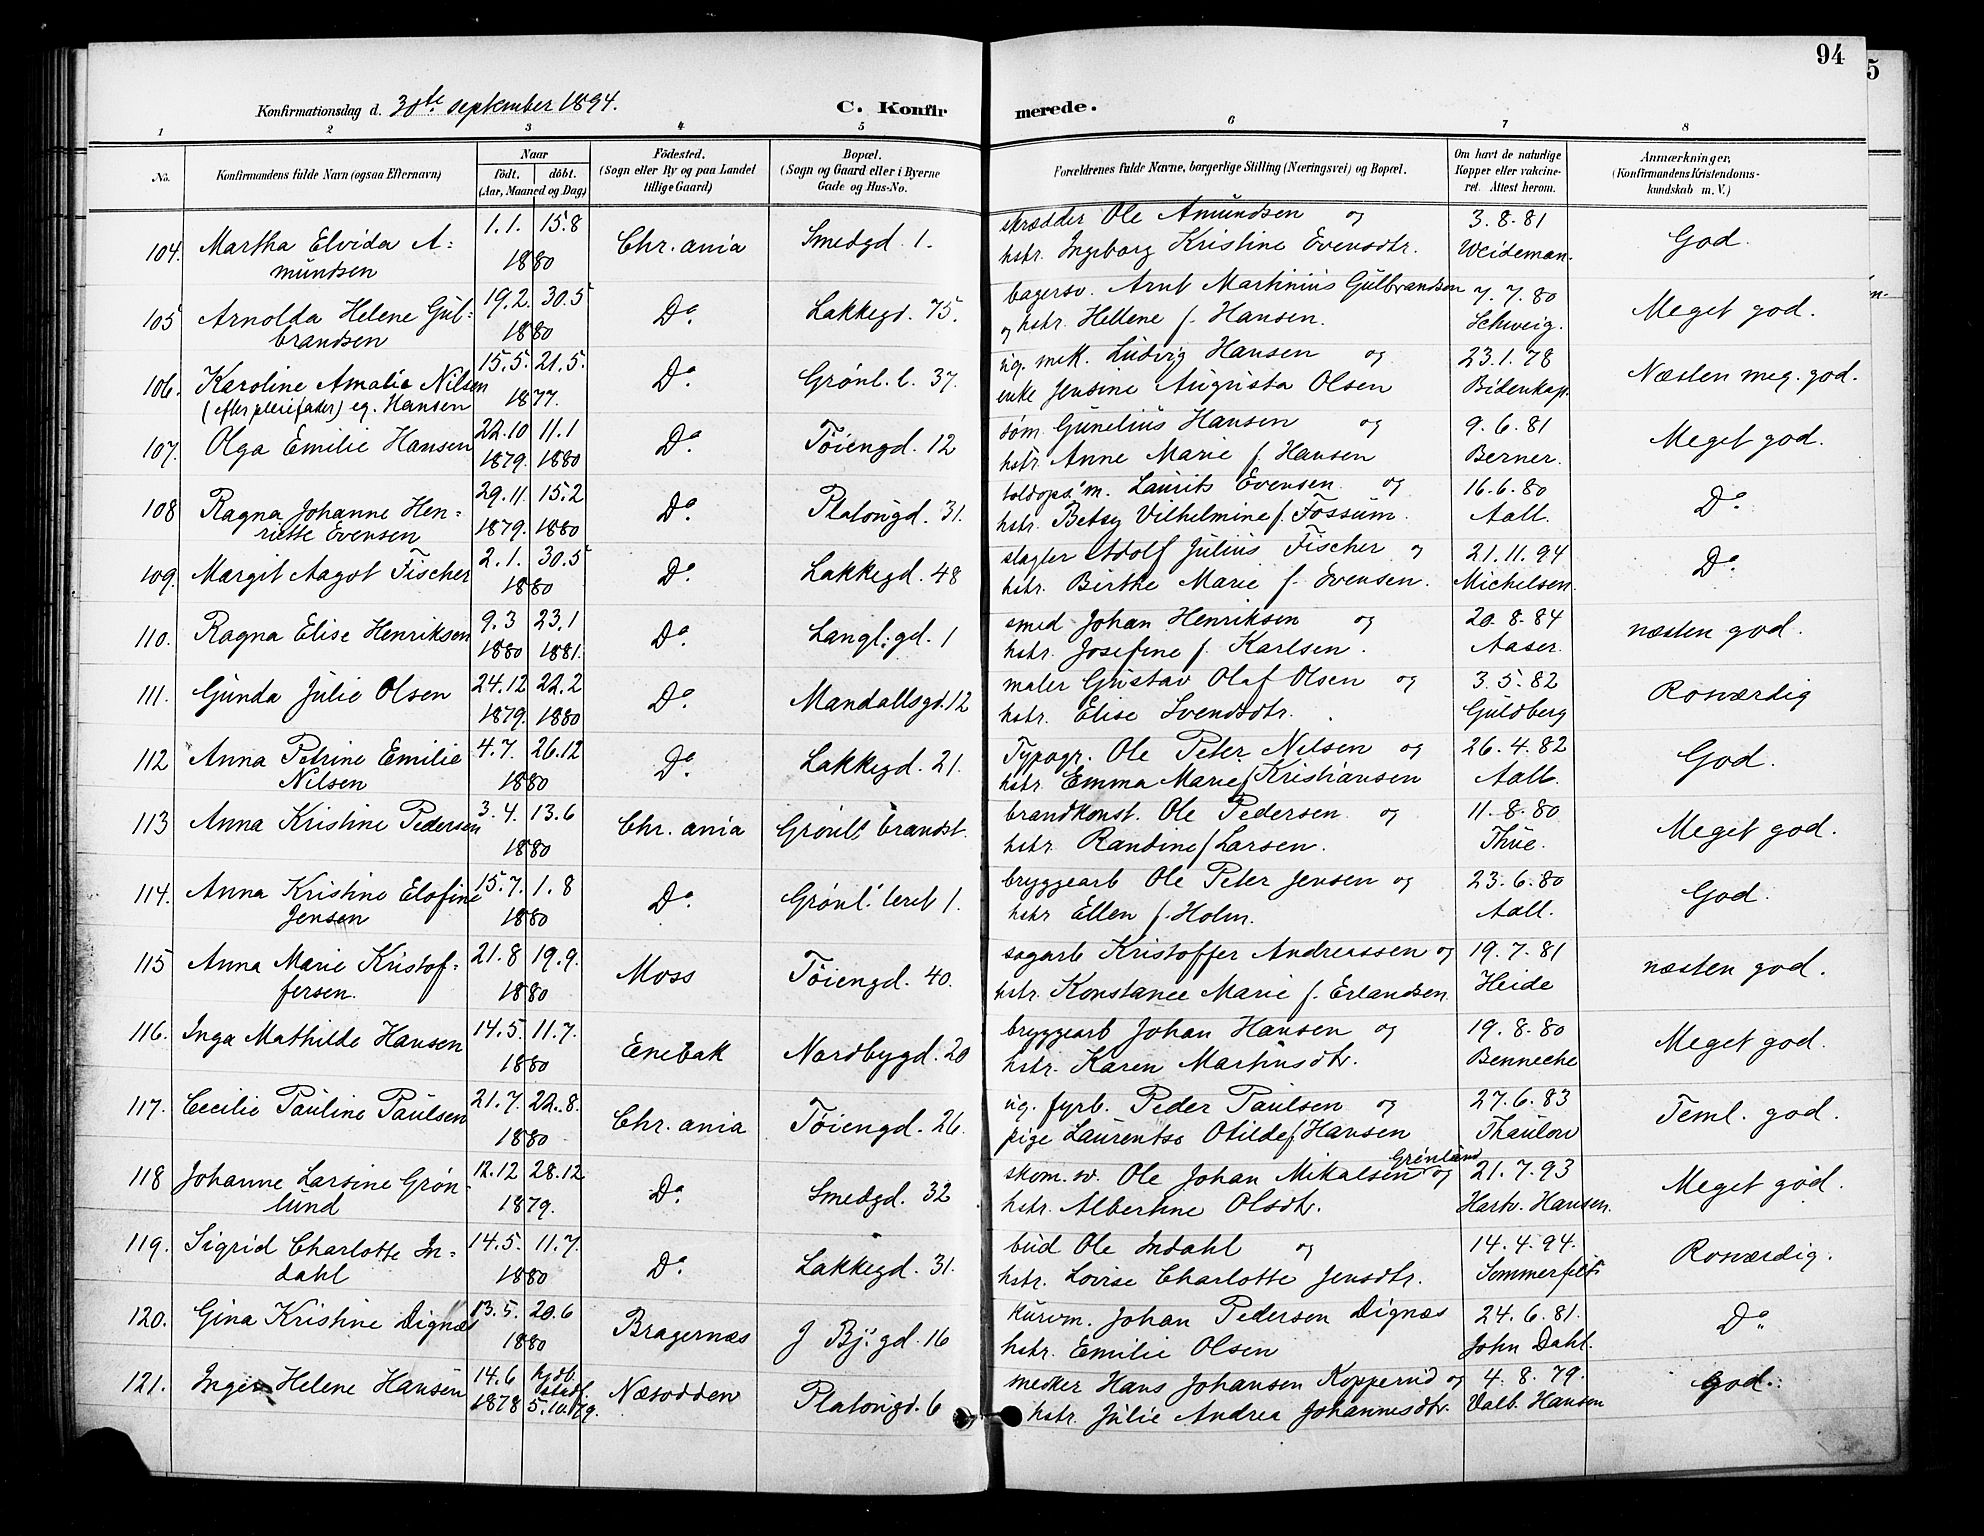 94
5
Konfirmationsdag d. 30te september 1894. C. Konfirmerede.
1 2 3 4 5 6 7 8
No. Konfirmandens fulde Navn (ogsaa Efternavn) Naar født. døbt. (Aar, Maaned og Dag) Födested. (Sogn eller By og paa Landet tillige Gaard) Bopæl. (Sogn og Gaard eller i Byerne Gade og Hus-No. Forældrenes fulde Navne, borgerlige Stilling (Næringsvei) og Bopæl. Om havt de naturlige Kopper eller vakcineret. Attest herom. Anmærkninger, (Konfirmandens Kristendomskundskab m. V.)
104. Martha Elvida A= 1.1. 15.8 Chr.ania Smedgd. 1. skrædder Ole Amundsen og 3.8.81 God.
mundsen 1880 hstr. Ingeborg Kristine Evensdtr. Weideman.
105 Arnolda Helene Gul- 19.2. 30.5 Do. Lakkegd. 75. bagersv. Arnt Martinius Gulbrandsen 7.7.80 Meget god.
brandsen 1880 og hstr. Hellene f. Hansen. Schweig.
106. Karoline Amalie Nilsen 15.5. 21.5. Do. Grønl. l. 37. ug. mek. Ludvig Hansen og 23.1.78 Næsten meg. god.
(efter pleiefader) eg. Hansen 1877. enke Jensine Augusta Olsen Bidenkap.
107. Olga Emilie Hansen 22.10 11.1 Do Töiengd. 12 søm. Gunelius Hansen og 9.6.81 Meget god.
1879. 1880 hstr. Anne Marie f. Hansen Berner.
108 Ragna Johanne Hen= 29.11. 15.2 Do. Platougd. 31. toldops.m. Laurits Evensen og 16.6.80 Do.
riette Evensen 1879. 1880 hstr. Betsy Vilhelmine f. Fossum. Aall.
109. Margit Aagot Fischer 2.1. 30.5 Do. Lakkegd. 48 slagter Adolf Julius Fischer og 21.11.94 Do.
1880 hstr. Birthe Marie f. Evensen. Michelsen.
110. Ragna Elise Henriksen 9.3 23.1 Do Langl.gd. 1 smed Johan Henriksen og 20.8.84 næsten god.
1880 1881. hstr. Josefine f. Karlsen. Aaser.
111. Gunda Julie Olsen 24.12 22.2 Do. Mandallsgd. 12 maler Gustav Olaf Olsen og 3.5.82 Rosværdig
1879. 1880 hstr. Elise Svendsdtr. Guldberg
112 Anna Petrine Emilie 4.7. 26.12 Do. Lakkegd. 21. Typogr. Ole Peter Nilsen og 26.4.82 God.
Nilsen 1880 hstr. Emma Marie f Kristiansen Aall.
113 Anna Kristine Pedersen 3.4. 13.6 Chr.ania Grönlt brandst. brandkonst. Ole Pedersen og 11.8.80 Meget god.
1880 hstr. Randine f Larsen. Thue.
114. Anna Kristine Elofine 15.7. 1.8 Do. Grønl. leret 1. bryggearb Ole Peter Jensen og 23.6.80 God.
Jensen 1880 hstr Ellen f. Holm. Aall.
115 Anna Marie Kristof- 21.8 19.9. Moss Töiengd. 40. sagarb Kristoffer Andreassen og 19.7.81 næsten god.
fersen. 1880 hstr. Konstance Marie f. Erlandsen Heide
116. Inga Mathilde Hansen 14.5. 11.7. Enebak Nordbygd. 20 bryggearb Johan Hansen og 19.8.80 Meget god.
1880 hstr. Karen Martinusdtr. Benneche
117. Cecilie Pauline Paulsen 21.7. 22.8. Chr.ania Töiengd. 26. ug. fyrb. Peder Paulsen og 27.6.83 Teml. god.
1880 pige Laurentse Otilde f Hansen Thaulow
118 Johanne Larsine Grøn- 12.12 28.12 Do. Smedgd. 32 skom. sv. Ole Johan Mikalsen Grønlund og 21.7.93 Meget god.
lund 1879. hstr. Albertine Olsdtr. Hartv. Hansen.
119. Sigrid Charlotte In= 14.5. 11.7. Do. Lakkegd. 31. bud Ole Indahl og 14.4.94. Rosværdig.
dahl 1880 hstr. Lovise Charlotte Jensdtr. Sommerfelt
120. Gina Kristine Dignæs 13.5. 20.6 Bragernæs J Bj. gd. 16 kurvm. Johan Pedersen Dignæs 24.6.81. Do
1880 hstr. Emilie Olsen John Dahl.
121. Inger Helene Hansen 14.6 hjdb. stadf. Næsodden Platougd. 6 snedker Hans Johansen Kopperud og 4.8.79. god.
1878 5.10.79. hstr. Julie Andrea Johannesdtr. Valb. Hansen